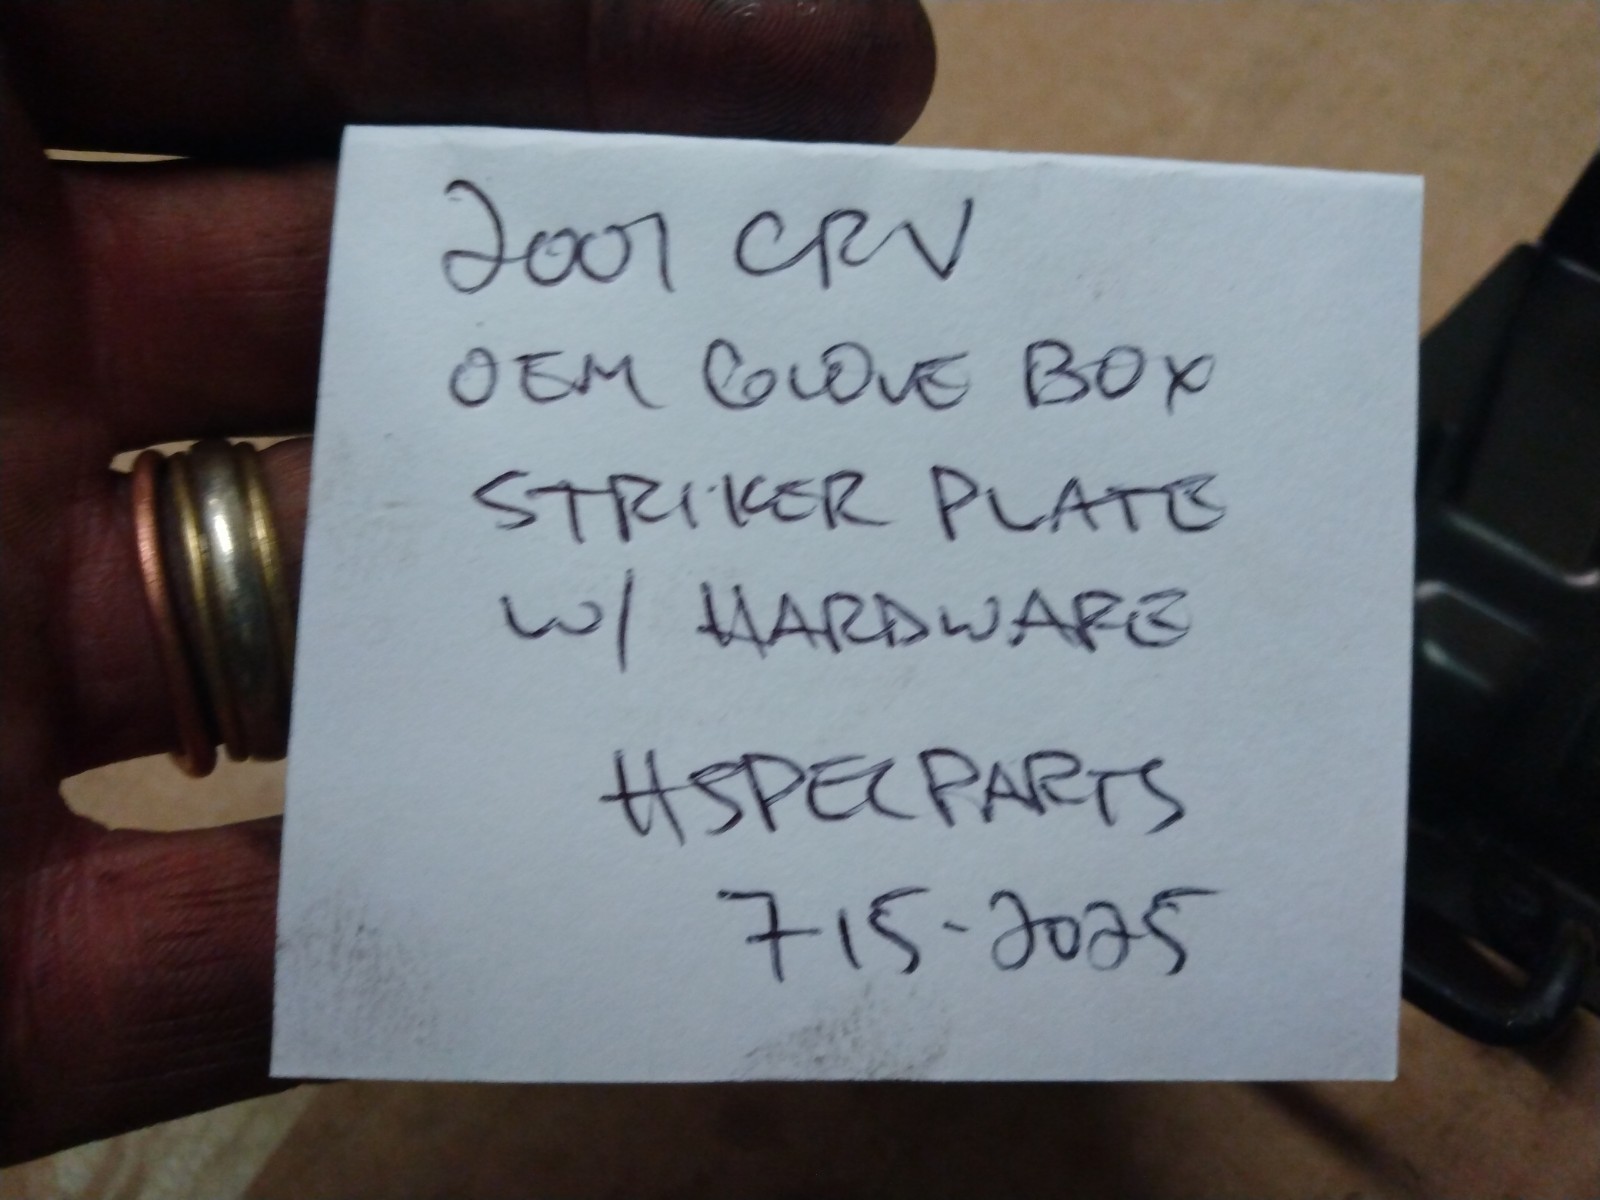 2001 CRV
OEM GLOVE BOX
STRIKER PLATE
W/ HARDWARE
HSPECPARTS
715-2025